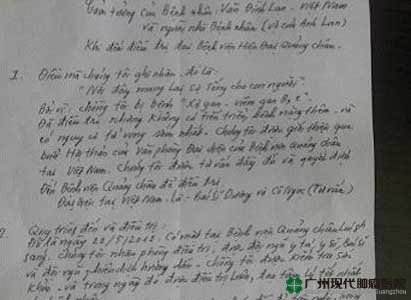 Cảm tưởng của Bệnh nhân: Văn Đình Lan - Việt Nam
và người nhà Bệnh nhân (vợ của Anh Lan)
Khi đến điều trị tại Bệnh viện Hiện Đại Quảng châu.
1. Điều mà chúng tôi ghi nhận, đó là:
"Nơi đây mang lại sự sống cho con người"
Bởi vì: chúng tôi bị Bệnh "Xơ gan - viêm gan B,
Đã điều trị nhưng không có tiến triển, bệnh nặng thêm và
có nguy cơ tử vong sớm nhất. Chúng tôi được giới thiệu qua
buổi Hội thảo của văn phòng Đại diện của Bệnh viện Quảng châu
tại Việt Nam. Chúng tôi được tư vấn đầy đủ và quyết định
Đến Bệnh viện Quảng châu để điều trị.
tại Việt Nam là: Bác Sĩ Dương và Cô Ngọc (Tư vấn)
2. Quy trình đến và điều trị:
Đó là ngày 22/5/2012. Có mặt tại Bệnh viện Quảng châu
sáng. Chúng tôi nhận phòng điều trị, được đội ngũ y tá, y sĩ, Bác sĩ
và đội ngũ phiên dịch hướng dẫn. Chúng tôi được kiểm tra sức
khỏe. và trong ngày đó được điều trị luôn, tâm lý tốt nhất
广州现代肿瘤医院
Guangzhou